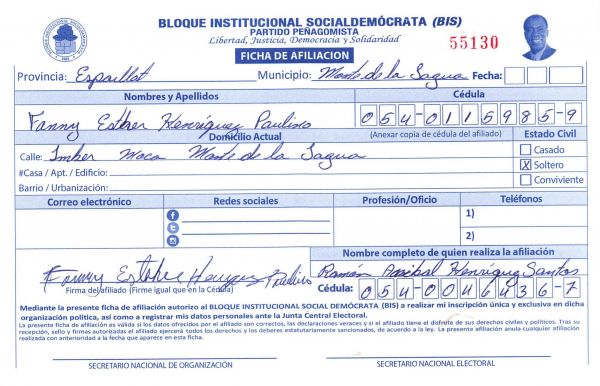 BLOQUE INSTITUCIONAL SOCIALDEMÓCRATA (BIS)
PARTIDO PEÑAGOMISTA
Libertad, Justicia, Democracia y Solidaridad
55130
FICHA DE AFILIACION
Provincia: Espaillat Municipio: Monte de la Jagua Fecha:
Nombres y Apellidos Cédula
Fanny Esther Henríquez Paulino 054-0115985-9
Domicilio Actual (Anexar copia de cédula del afiliado) Estado Civil
Calle: Imber Moca Monte de la Jagua Casado
#Casa / Apt. / Edificio: X Soltero
Barrio / Urbanización: Conviviente
Correo electrónico Redes sociales Profesión/Oficio Teléfonos
1)
2)
Nombre completo de quien realiza la afiliación
Fanny Esther Henríquez Paulino Ramón Anibal Henríquez Santos
Firma del afiliado (Firme igual que en la Cédula) Cédula: 054-0046436-7
Mediante la presente ficha de afiliación autorizo al BLOQUE INSTITUCIONAL SOCIAL DEMÓCRATA (BIS) a realizar mi inscripción única y exclusiva en dicha
organización política, así como a registrar mis datos personales ante la Junta Central Electoral.
La presente ficha de afiliación es válida si los datos ofrecidos por el afiliado son correctos, las declaraciones veraces y si el afiliado tiene el disfrute de sus derechos civiles y políticos. Tras su
recepción, sello y firmas autorizadas el afiliado ejercerá todos los derechos y los deberes estatutariamente consagrados, de acuerdo a la ley. La presente afiliación anula cualquier afiliación
realizada con anterioridad a la fecha que aparece en esta ficha.
SECRETARIO NACIONAL DE ORGANIZACIÓN SECRETARIO NACIONAL ELECTORAL